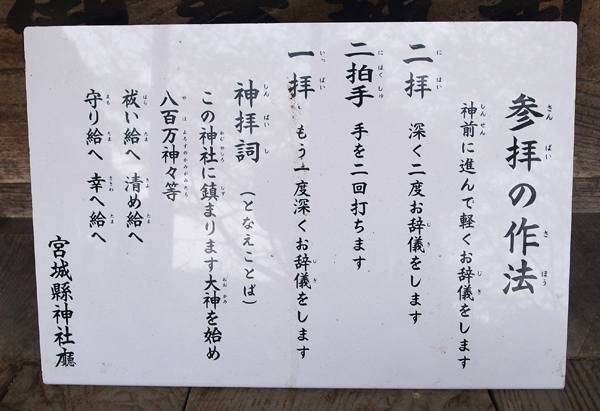 参拝の作法
神前に進んで軽くお辞儀をします
二拝 深く二度お辞儀をします
二拍手 手を二回打ちます
一拝 もう一度深くお辞儀をします
神拝詞 (となえことば)
この神社に鎮まります大神を始め
八百万神々等
祓い給へ 清め給へ
守り給へ 幸へ給へ
宮城縣神社廳